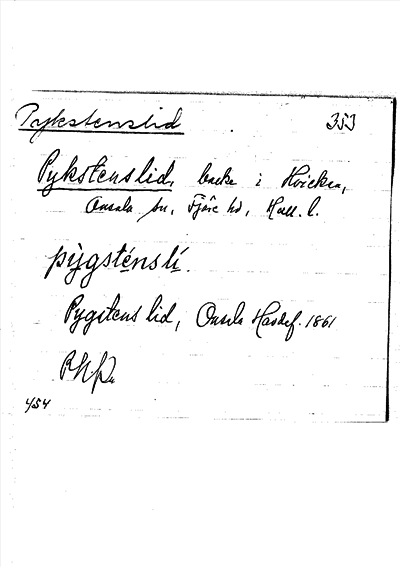 Pykstenslid 353
Pykstenslid, backe i
Onsala sn, Fjäre hd, Hall. l.
pỳgsténslí.
Pygstens lid, Onsala 1861
454